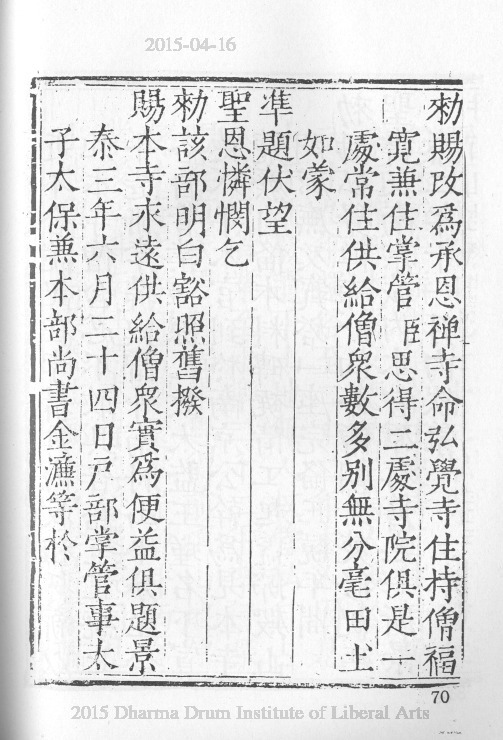 2015-04-16
勑賜改爲承恩禅寺命弘覺寺住持僧福
寬兼住掌管臣思得二處寺院俱是一
處常住供給僧衆數多别無分毫田土
如蒙
準題伏望
聖恩憐憫乞
勑該部明白豁照舊撥
賜本寺永遠供給僧衆實爲便益俱題景
泰三年六月二十四日戸部掌管事太
子太保兼本部尚書金濂等於
70
2015 Dharma Drum Institute of Liberal Arts